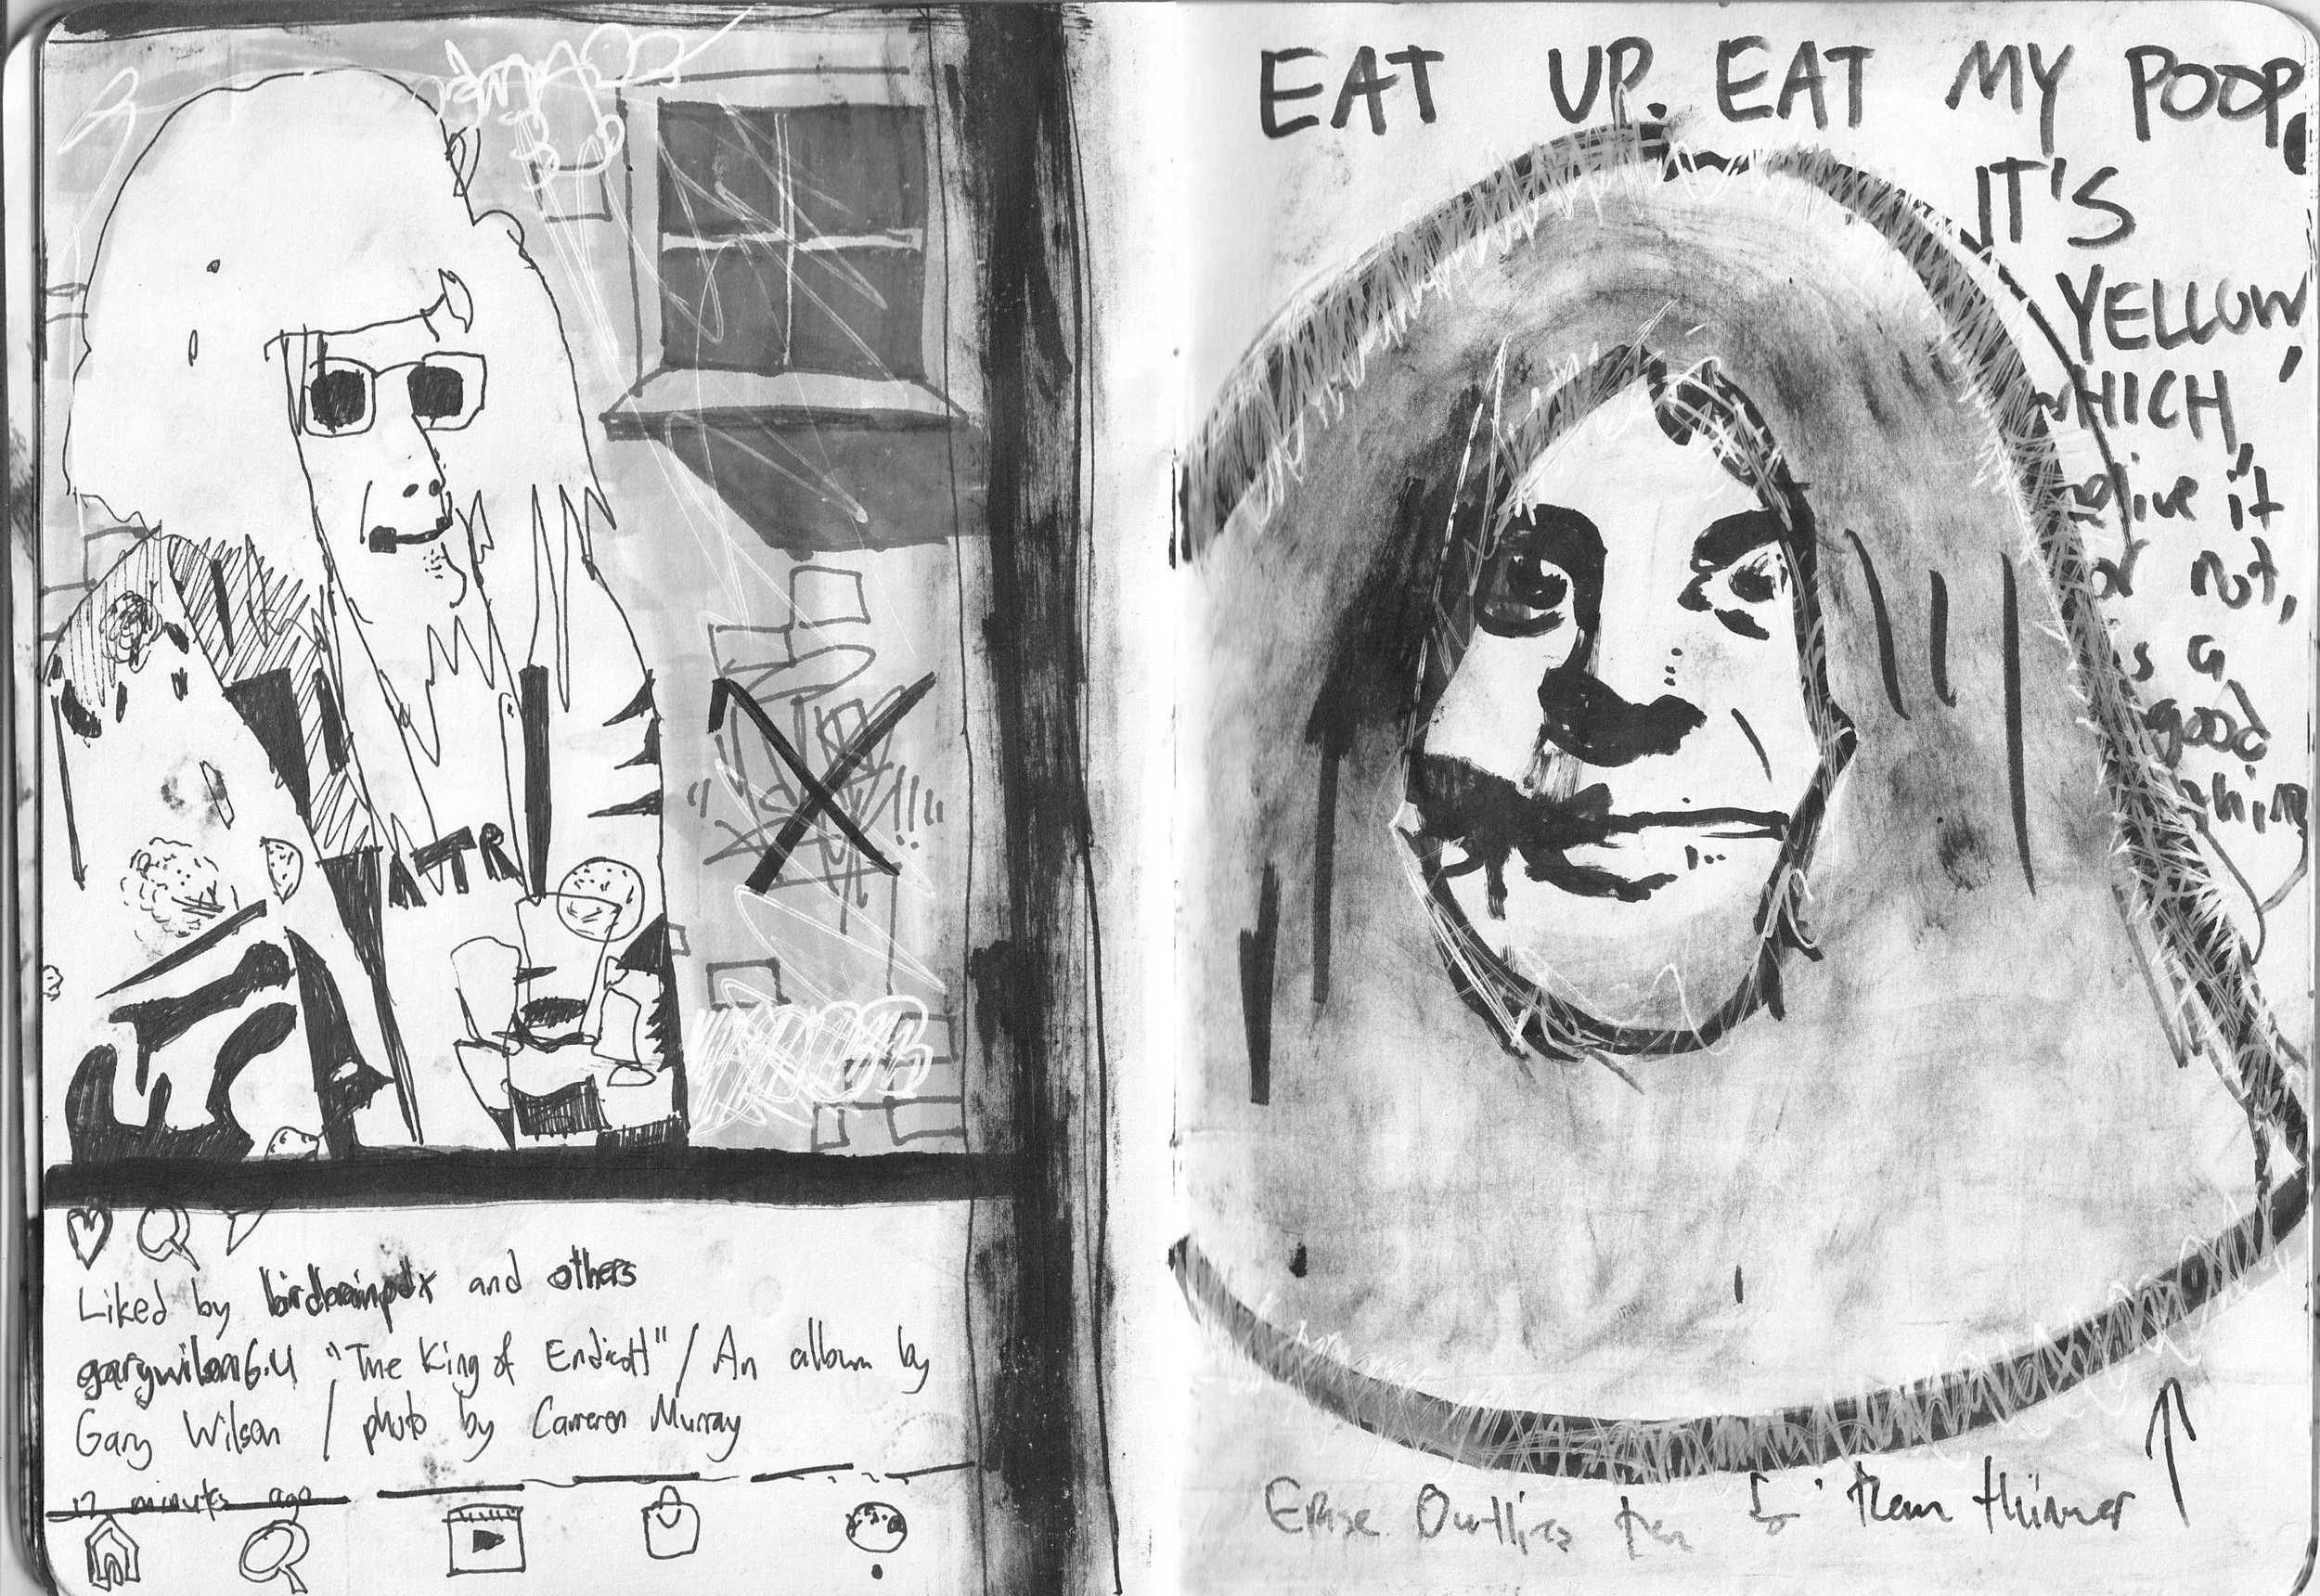 Liked by birdbrainpdx and others
garywilson6.4 "The King of Endicott" / An album by
Gary Wilson / photo by Cameron Murray
17 minutes ago
EAT UP. EAT MY POOP.
IT'S
YELLOW,
WHICH,
like it
or not,
is a
good
thing
Erase Outlines them thinner